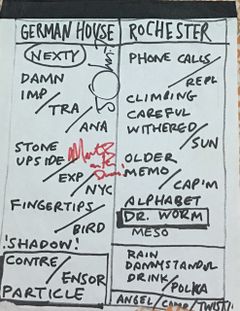 GERMAN HOUSE
NEXTY
DAMN
IMP/
TRA/
ANA
STONE
UPSIDE
EXP/
NYC
FINGERTIPS/
BIRD
!SHADOW!
CONTRE/
ENSOR
PARTICLE
ROCHESTER
PHONE CALLS/
REPL
CLIMBING
CAREFUL
WITHERED/
SUN
OLDER
MEMO/
CAP'M
ALPHABET
DR. WORM
MESO
RAIN
DRINK/
POLKA
ANGEL/